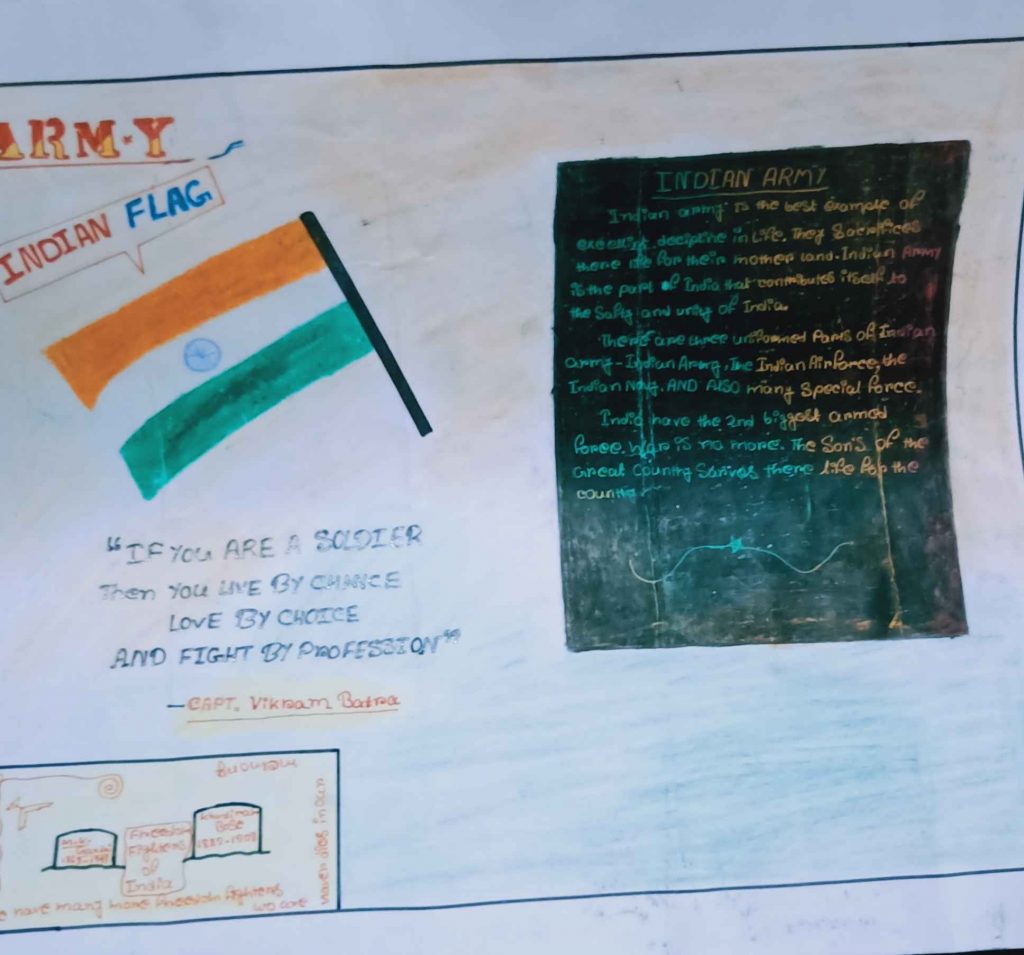 ARM-Y
INDIAN FLAG
INDIAN ARMY
Indian army is the best example of
decipline in life. They Sacrifices
there life for their mother land. Indian Army
is the part of India that contributes itself to
the Safty and unity of India.
There are three uniformed Parts of Indian
army - Indian Army, The Indian Airforce, the
Indian Navy. AND Also many Special force.
India have the 2nd biggest armed
force. War is no more. The Son's of the
Great Country Sarives there life for the
"IF YOU ARE A SOLDIER
Then YOU LIVE BY CHANCE
LOVE BY CHOICE
AND FIGHT BY PROFESSION"
- CAPT. Vikram Batra
1869-1948
Freedom
Fighters
of
India
Bose
1889-1908
have many more freedom fighters
we are
never dies